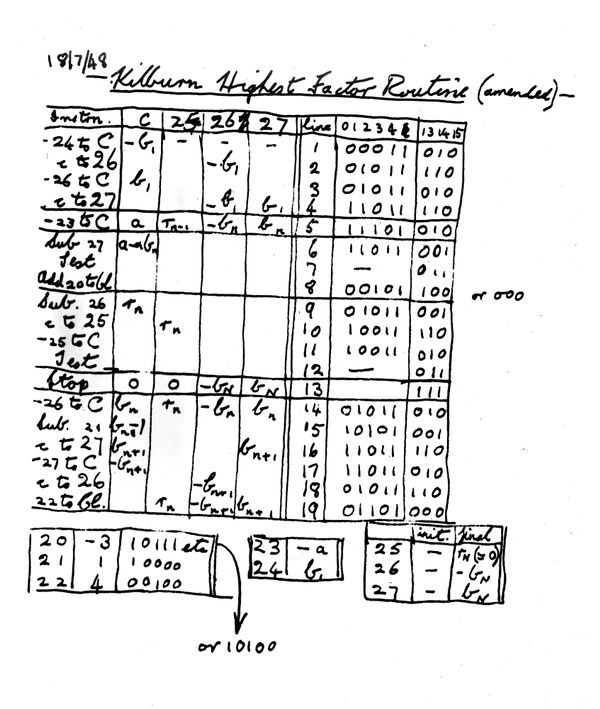 18/7/48
Kilburn Highest Factor Routine (amended)—
Instrn. C 25 26 27 line 0 1 2 3 4 13 14 15
-24 to C -b₁ - - - 1 00011 010
c to 26 -b₁ 2 01011 110
-26 to C b₁ 3 01011 010
c to 27 -b₁ b₁ 4 11011 110
-23 to C a rₙ₋₁ -bₙ bₙ 5 11101 010
Sub. 27 a-abₙ 6 11011 001
Test 7 — 011
Add 20 to bl. 8 00101 100
or 000
Sub. 26 rₙ 9 01011 001
c to 25 rₙ 10 10011 110
-25 to C 11 10011 010
Test 12 — 011
Stop 0 0 -b_N b_N 13 111
-26 to C bₙ rₙ -bₙ bₙ 14 01011 010
Sub. 21 15 10101 001
c to 27 bₙ₊₁ bₙ₊₁ 16 11011 110
-27 to C -bₙ₊₁ 17 11011 010
c to 26 -bₙ₊₁ 18 01011 110
22 to bl. rₙ -bₙ₊₁ bₙ₊₁ 19 01101 000
20 -3 10111 etc
21 1 10000
22 4 00100
or 10100
23 -a
24 b₁
init. final
25 - r_N (=0)
26 - -b_N
27 - b_N